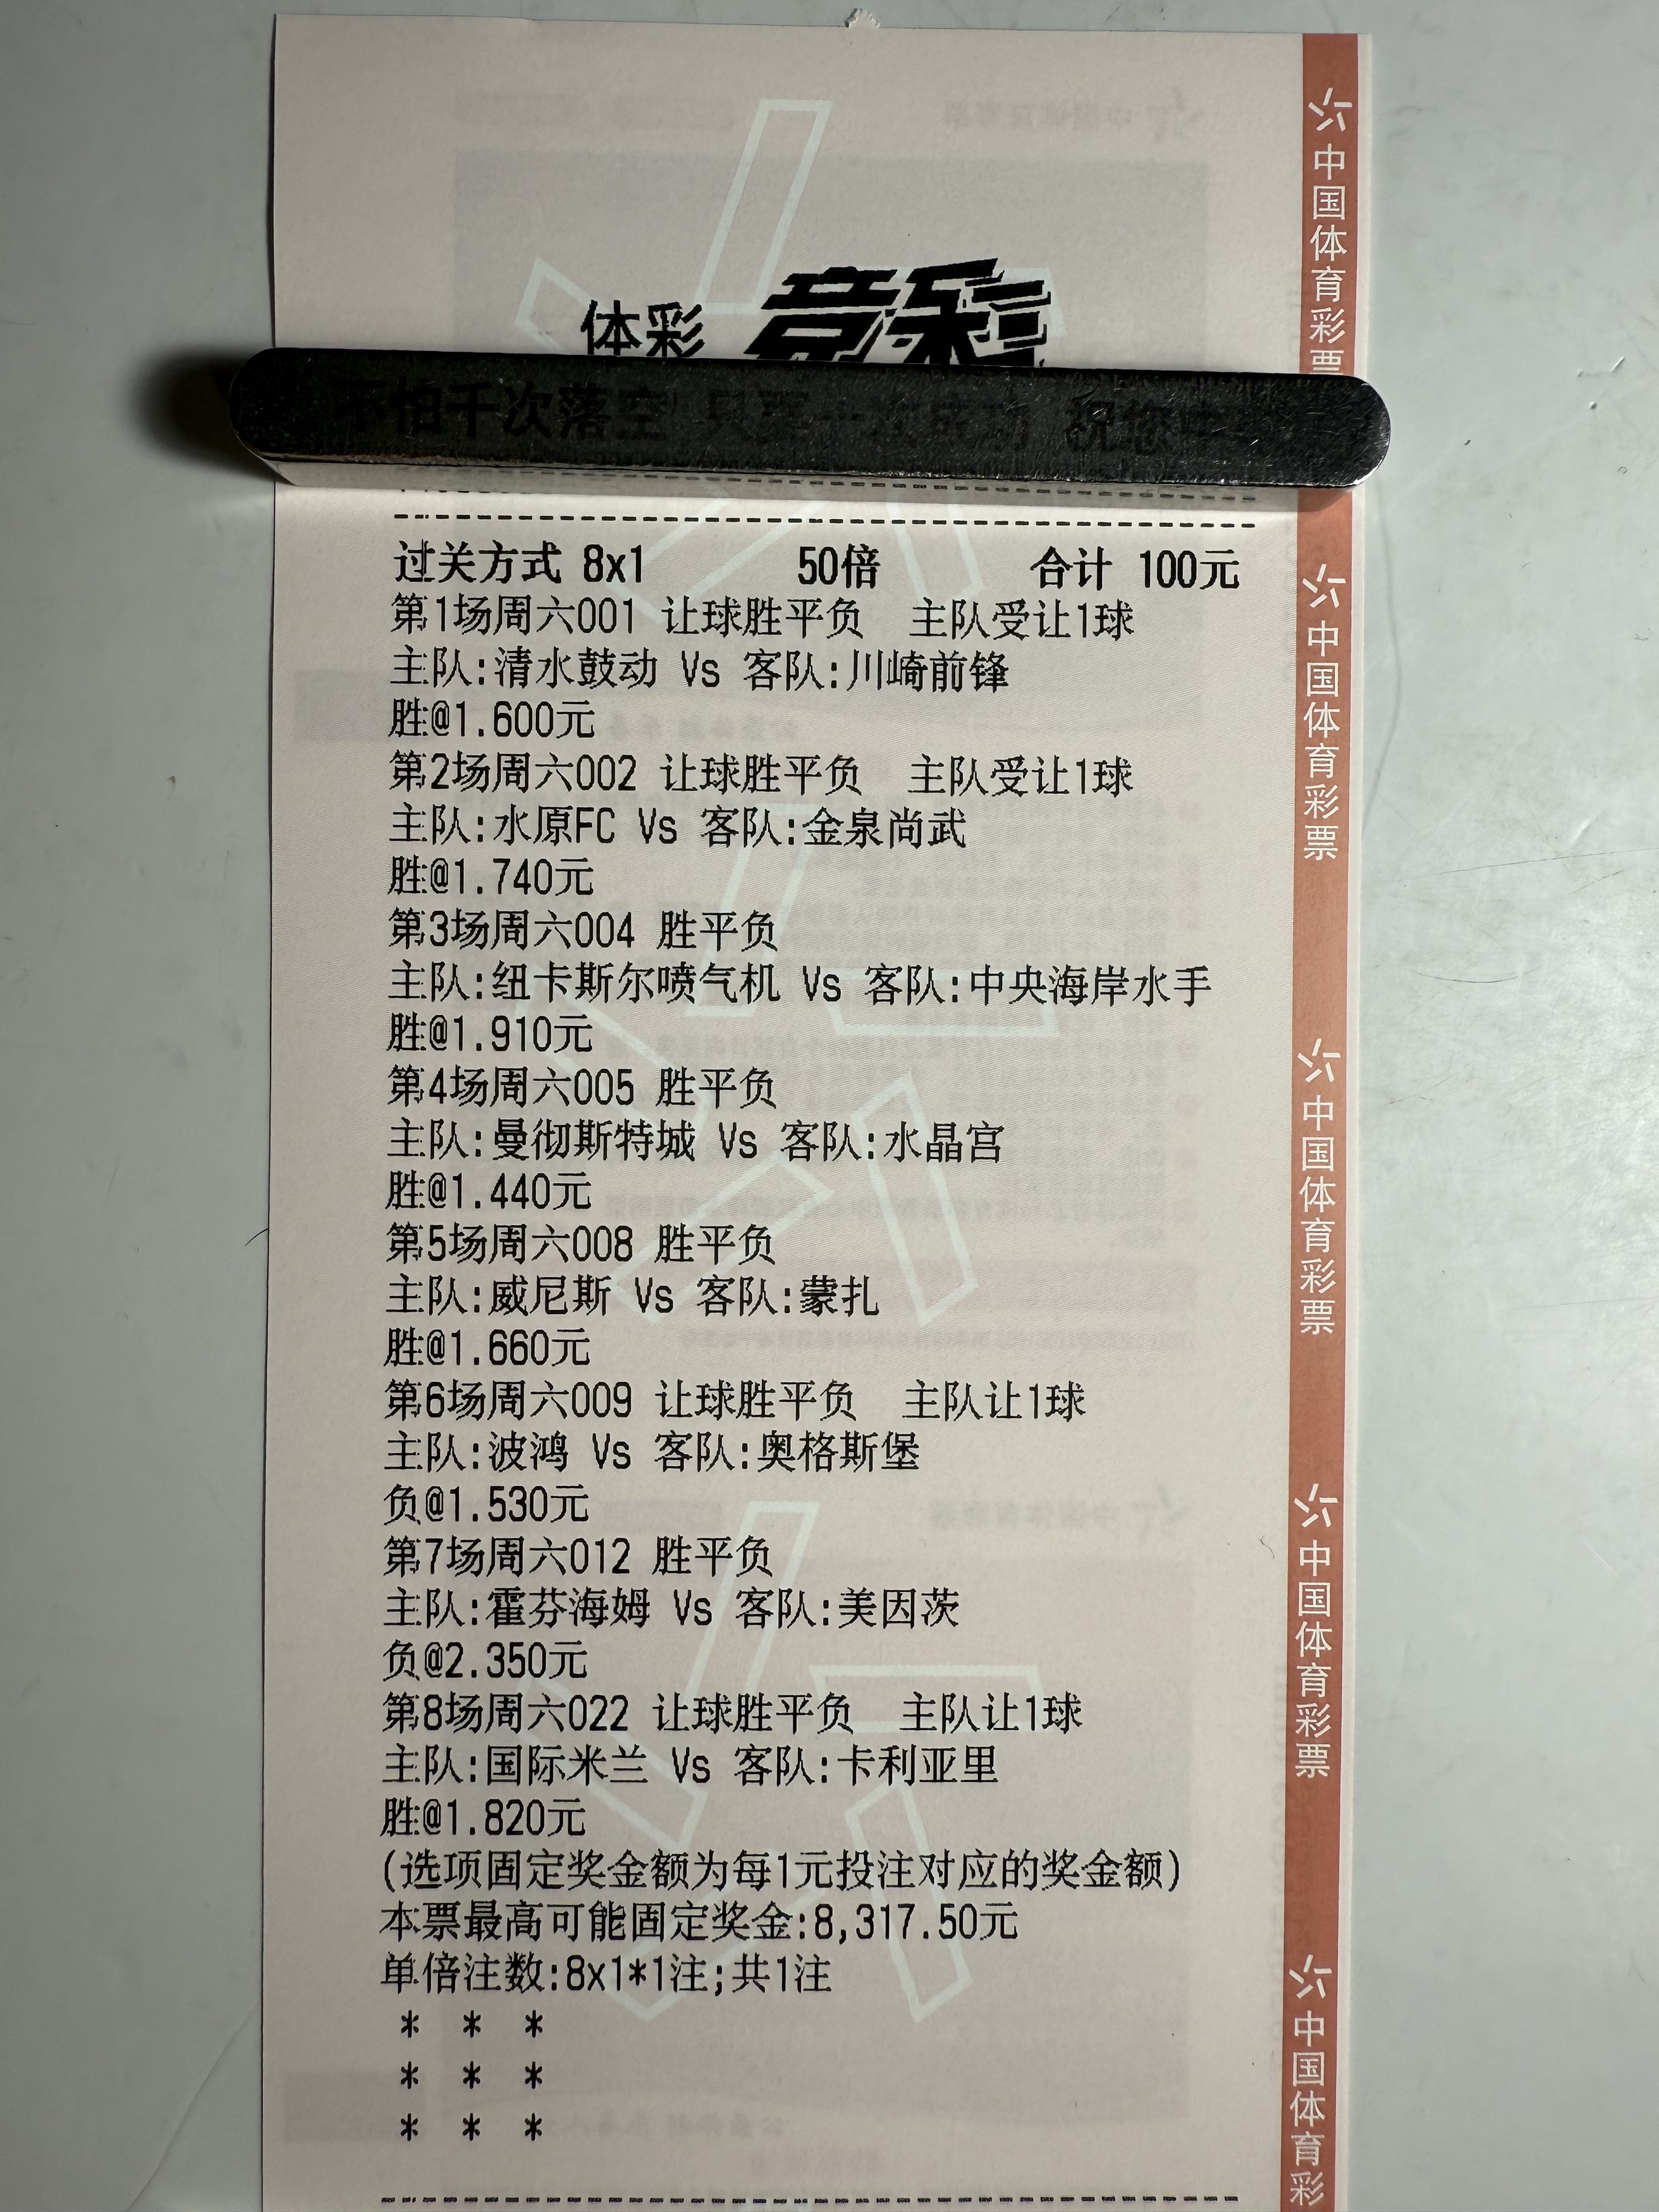 体彩 竞彩
不怕千次落空 只要一次成功 祝您中
过关方式 8x1 50倍 合计 100元
第1场周六001 让球胜平负 主队受让1球
主队:清水鼓动 Vs 客队:川崎前锋
胜@1.600元
第2场周六002 让球胜平负 主队受让1球
主队:水原FC Vs 客队:金泉尚武
胜@1.740元
第3场周六004 胜平负
主队:纽卡斯尔喷气机 Vs 客队:中央海岸水手
胜@1.910元
第4场周六005 胜平负
主队:曼彻斯特城 Vs 客队:水晶宫
胜@1.440元
第5场周六008 胜平负
主队:威尼斯 Vs 客队:蒙扎
胜@1.660元
第6场周六009 让球胜平负 主队让1球
主队:波鸿 Vs 客队:奥格斯堡
负@1.530元
第7场周六012 胜平负
主队:霍芬海姆 Vs 客队:美因茨
负@2.350元
第8场周六022 让球胜平负 主队让1球
主队:国际米兰 Vs 客队:卡利亚里
胜@1.820元
(选项固定奖金额为每1元投注对应的奖金额)
本票最高可能固定奖金:8,317.50元
单倍注数:8x1*1注;共1注
* * *
* * *
* * *
中国体育彩票
中国体育彩票
中国体育彩票
中国体育彩票
中国体育彩